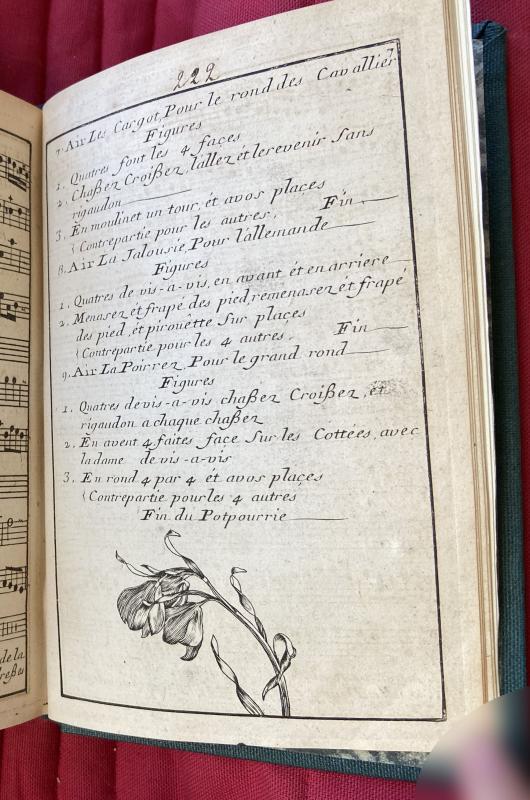 222
7. Air Les Cargot, Pour le rond des Cavallier
Figures
1. Quatres font les 4 façes
2. Chaßez Croißez, l'allez ét le revenir Sans
rigaudon
3. En moulinet un tour, ét avos plaçes
(Contrepartie pour les autres. Fin
8. Air La Jalousie, Pour l'allemande
Figures
1. Quatres de vis-a-vis, en avant ét en arriere
2. Menasez ét frapé des pied, remenasez ét frapé
des pied, ét piroüette Sur plaçes
(Contrepartie pour les 4 autres. Fin
9. Air La Pourrez, Pour le grand rond
Figures
1. Quatres de vis-a-vis chaßez Croißez, ét
rigaudon a chaque chaßez
2. En avent 4 faites façe Sur les Cottées, avec
la dame de vis-a-vis
3. En rond 4 par 4 ét avos plaçes
(Contrepartie pour les 4 autres
Fin du Potpourrie
de la